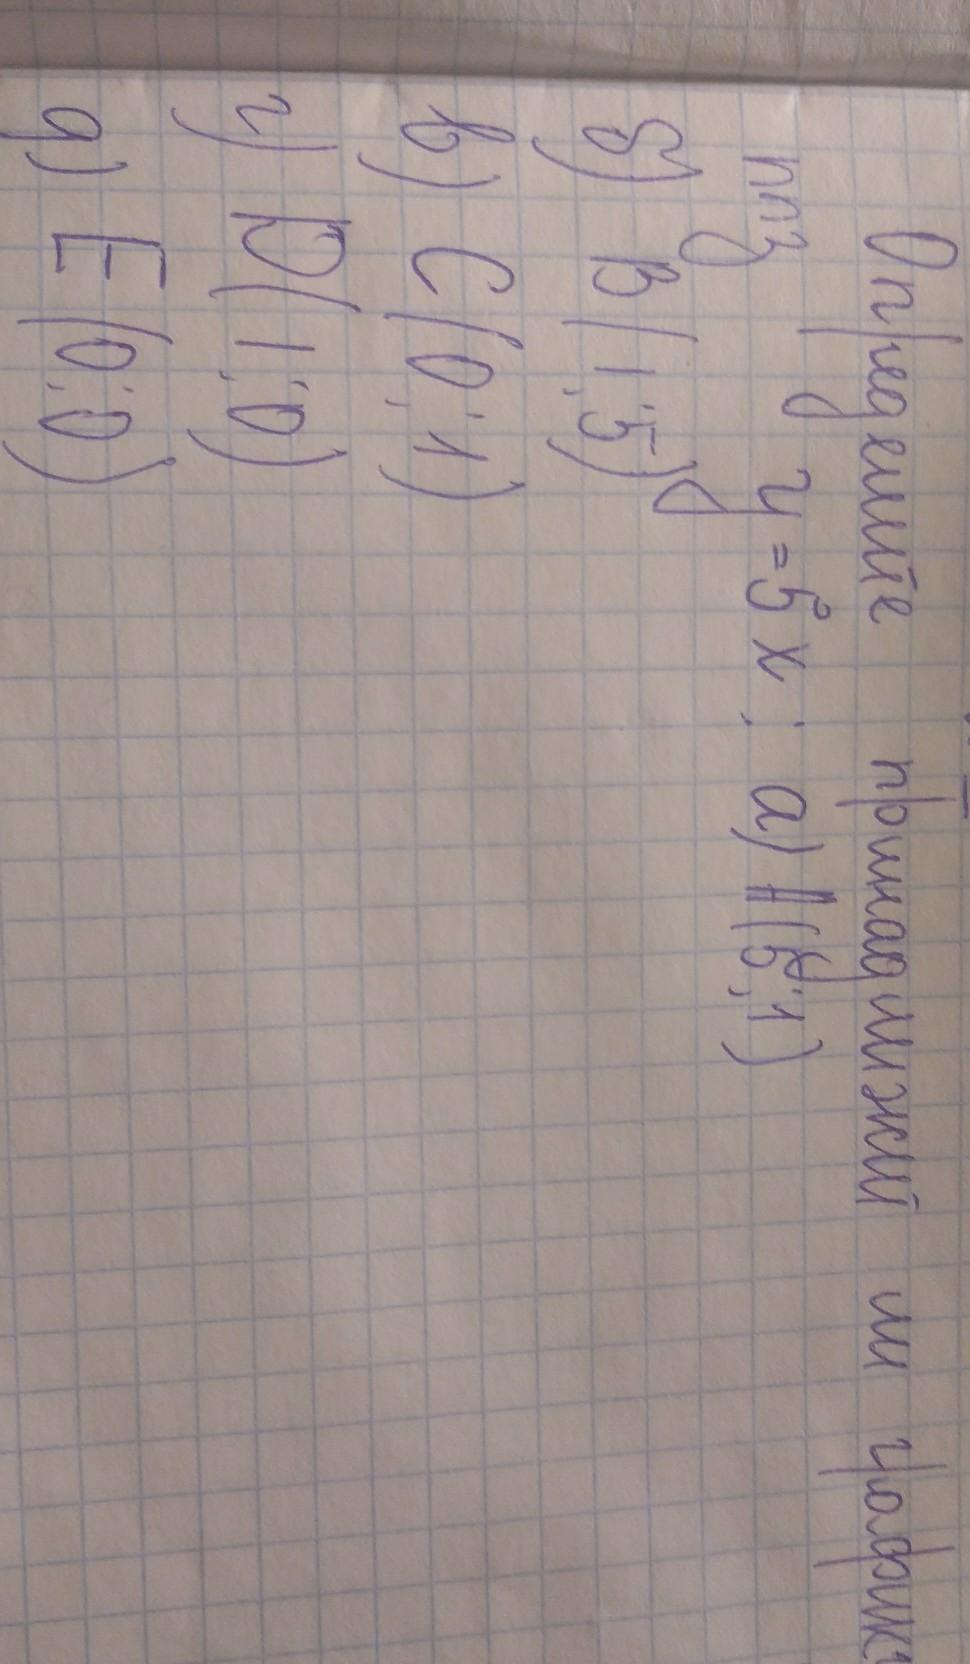 Определите принадлижит ли графику
ппз у y = 5x : а) А(5;1)
б) В(1;5)
в) С(0;1)
г) D(1;0)
д) Е(0;0)